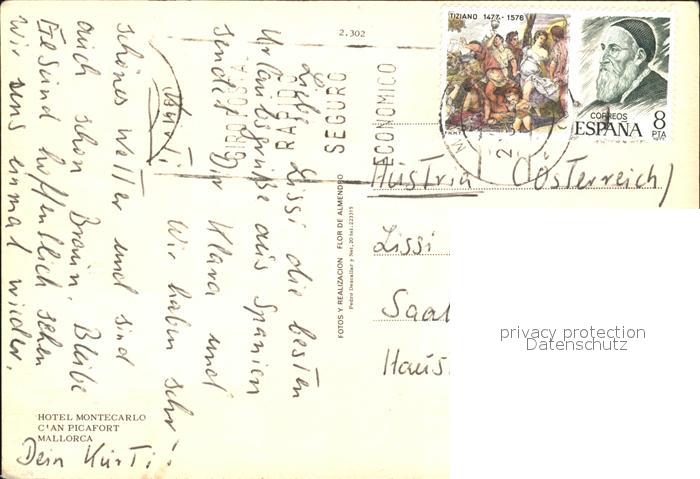 2.302
TIZIANO 1477-1576
CORREOS
ESPAÑA
8
PTA
F.N.M.T.
GIRO POSTAL
RAPIDO
SEGURO
ECONOMICO
Liebe Lissi die besten
Urlaubsgrüße aus Spanien
sendet Dir Klara und
Kurti
Wir haben sehr
schönes Wetter und sind
auch schon Braun. Bleibe
Gesund hoffentlich sehen
wir uns einmal wieder.
Dein Kurti!
HOTEL MONTECARLO
C'AN PICAFORT
MALLORCA
FOTOS Y REALIZACION FLOR DE ALMENDRO
Pedro Dezcallar y Net, 20 tel. 223315
Austria (Österreich)
Lissi
Saal
Haus
privacy protection
Datenschutz